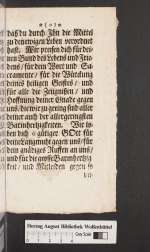 daß du durch Ihn die Mittel
zu dem ewigen Leben verordnet
hast. Wir preisen dich für dei-
nen Bund des Lebens und Frie-
dens/ für dein Wort und Sa-
cramente/ für die Würckung
deines heiligen Geistes/ und
für alle die Zeugnüssen/ und
Hoffnung deiner Gnade gegen
uns/ die wir zu gering sind aller
deiner auch der allergeringsten
Barmhertzigkeiten. Wir
ben dich o gütiger GOtt für
deine Langmuht gegen uns/ für
dein gnädiges Ruffen an uns/
und für die grosse Barmhertzig
keit/ und Mitleiden gegen
Herzog August Bibliothek Wolfenbüttel